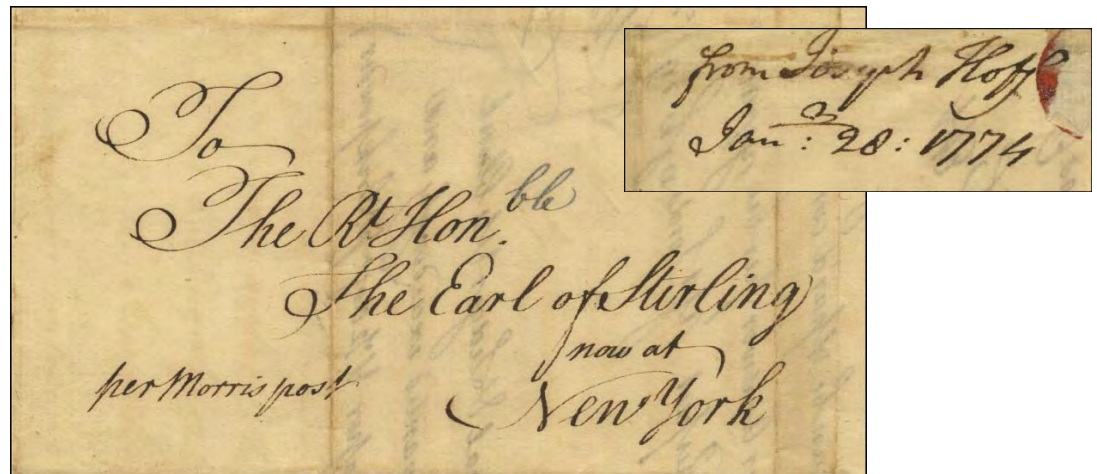 To
The Rt. Hon.ble
The Earl of Stirling
now at
New York
per Morris post
from Joseph Hoff
Jan: 28: 1774